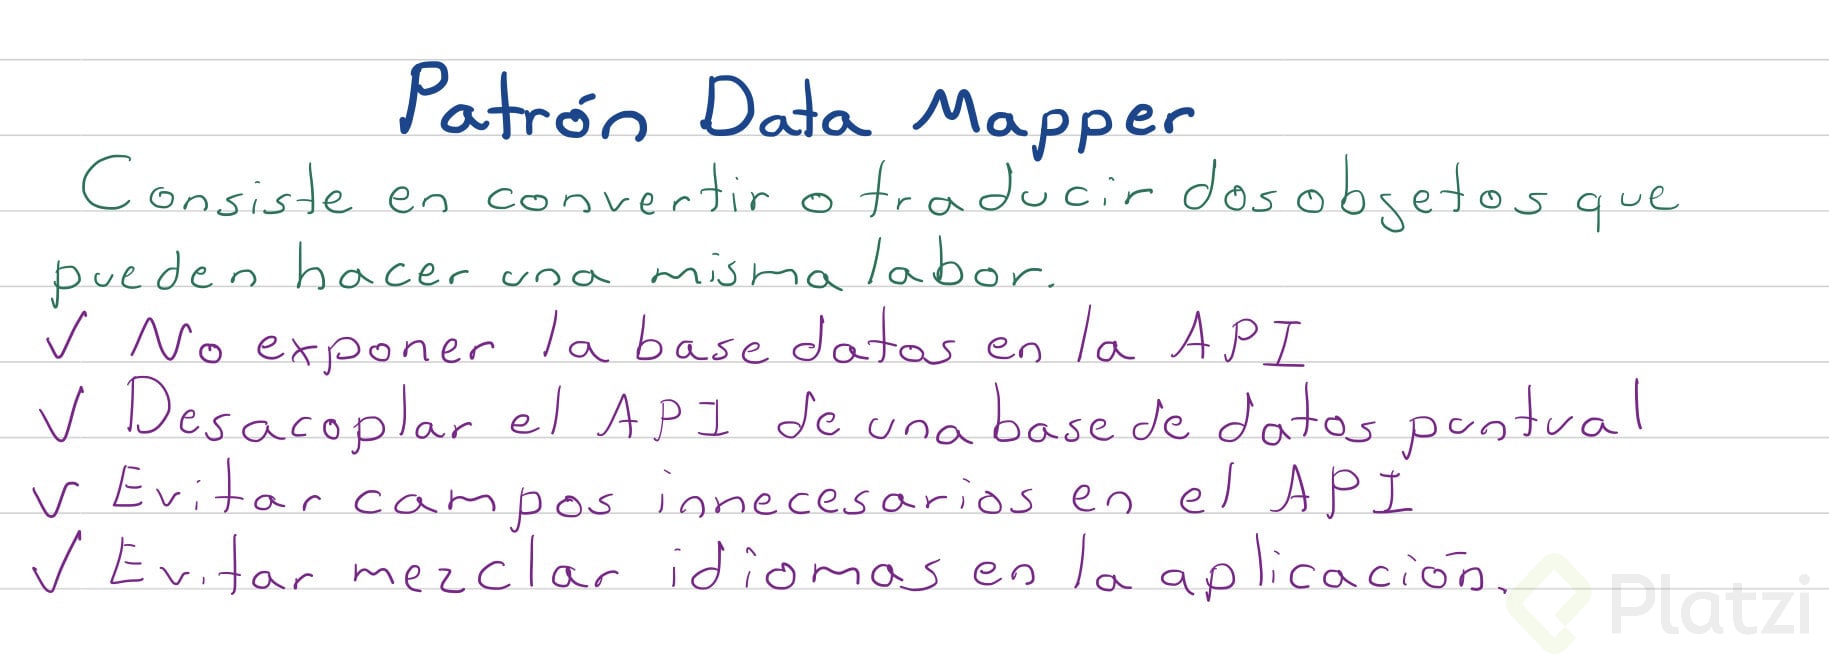 Patrón Data Mapper
Consiste en convertir o traducir dos objetos que
pueden hacer una misma labor.
✓ No exponer la base datos en la API
✓ Desacoplar el API de una base de datos puntual
✓ Evitar campos innecesarios en el API
✓ Evitar mezclar idiomas en la aplicación.
Platzi